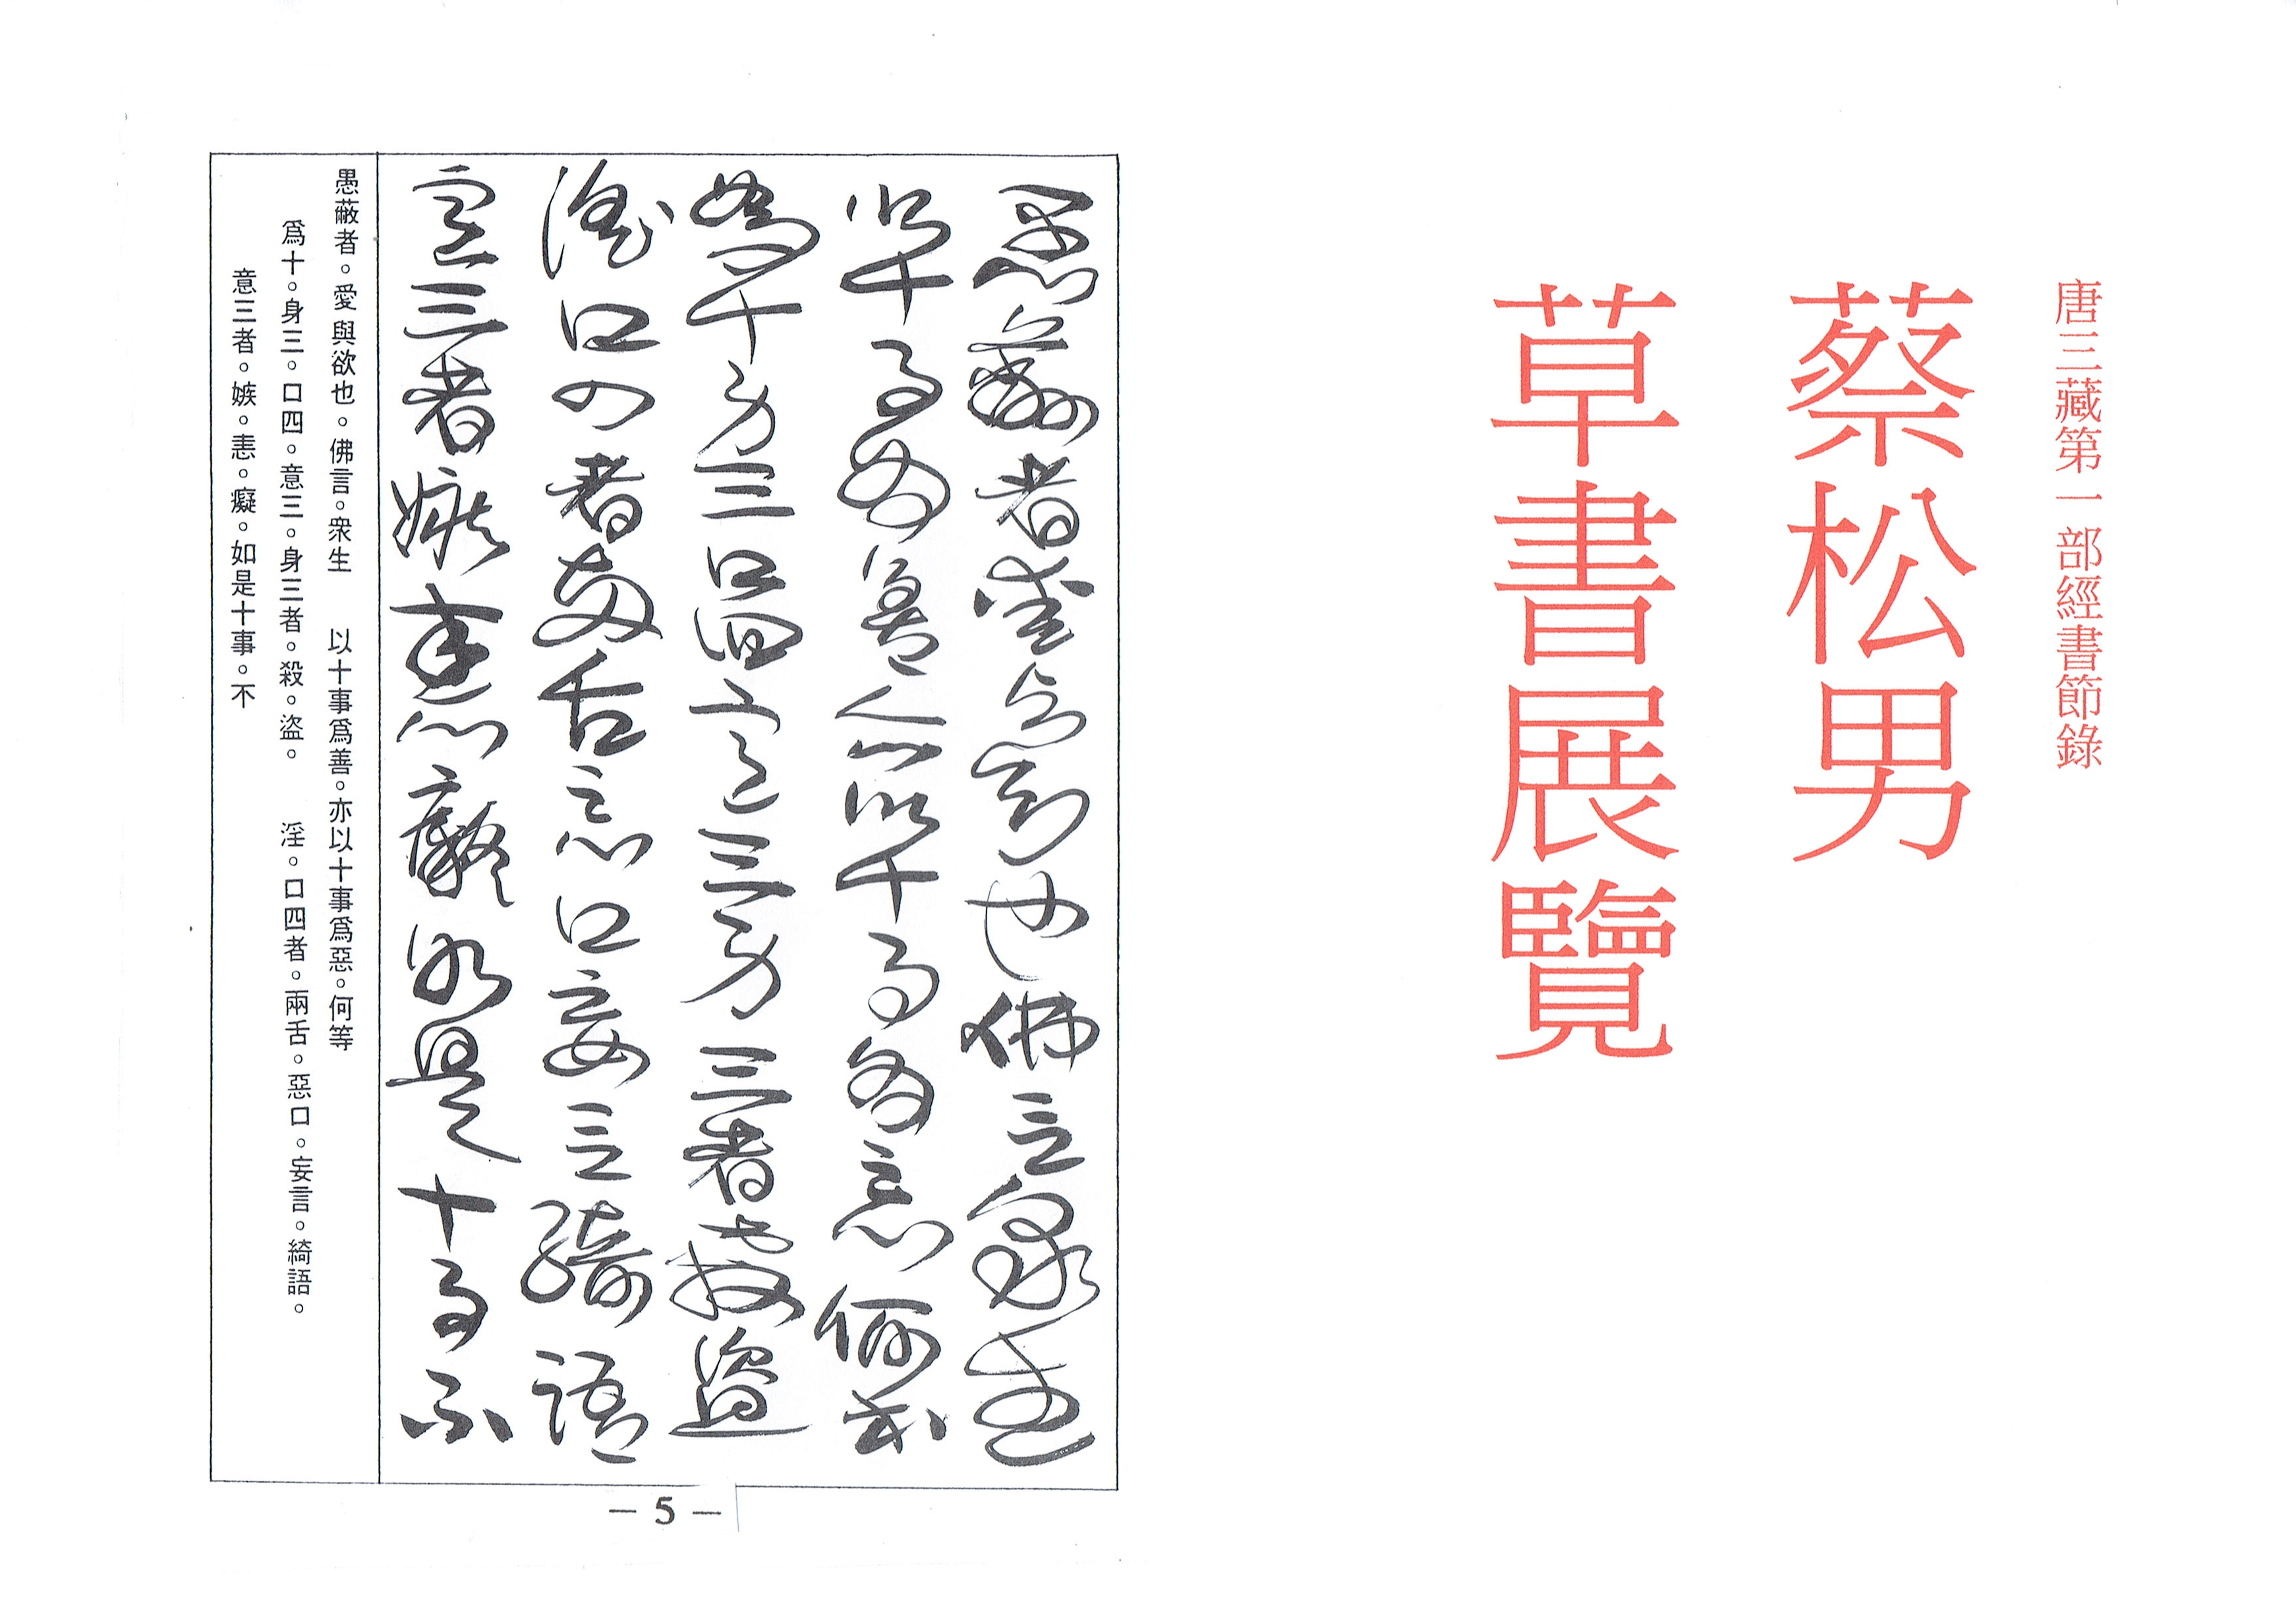 唐三藏第一部經書節錄
蔡松男
草書展覽
愚蔽者愛與欲也佛言衆生
以十事爲善亦以十事爲惡何等
爲十身三口四意三身三者殺盜
淫口四者兩舌惡口妄言綺語
意三者嫉恚癡如是十事不
愚蔽者。愛與欲也。佛言。衆生　以十事爲善。亦以十事爲惡。何等
爲十。身三。口四。意三。身三者。殺。盜。　淫。口四者。兩舌。惡口。妄言。綺語。
意三者。嫉。恚。癡。如是十事。不
— 5 —